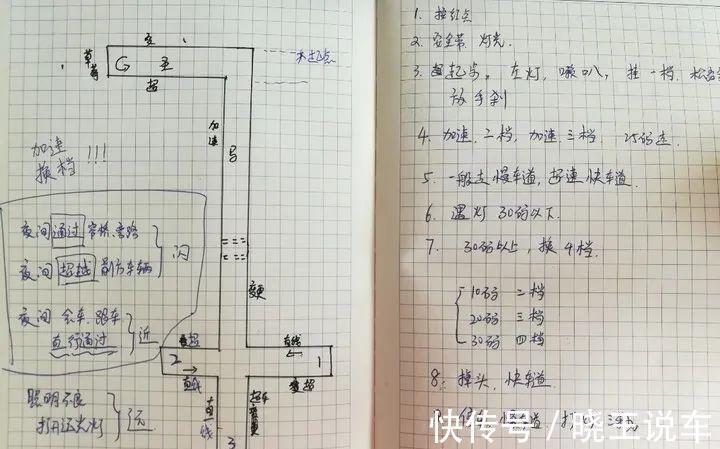 草莓
超
加速
加速
换档 !!!
夜间 通过 窄桥、弯路
夜间 超越 前方车辆
闪
夜间 会车、跟车
直行通过
近
照明不良
打开远光灯
远
变更
直线
2
1
直线
变超
直线
3
1. 按红点
2. 安全带 灯光
3. 起步。左灯, 喇叭, 挂一档, 松
放手刹
4. 加速、二档, 加速、三档、25码走
5. 一般走慢车道, 超速快车道
6. 遇灯 30码以下.
7. 30码以上, 换4档.
10码 二档
20码 三档
30码 四档
8. 掉头, 快车道
快传号/晓王说车